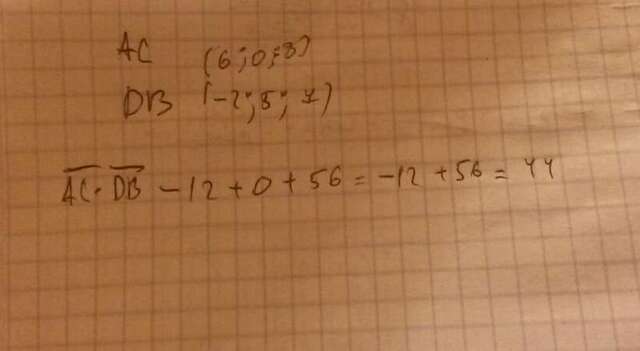 AC (6;0;8)
DB (-2;5;7)
AC·DB -12+0+56=-12+56=44